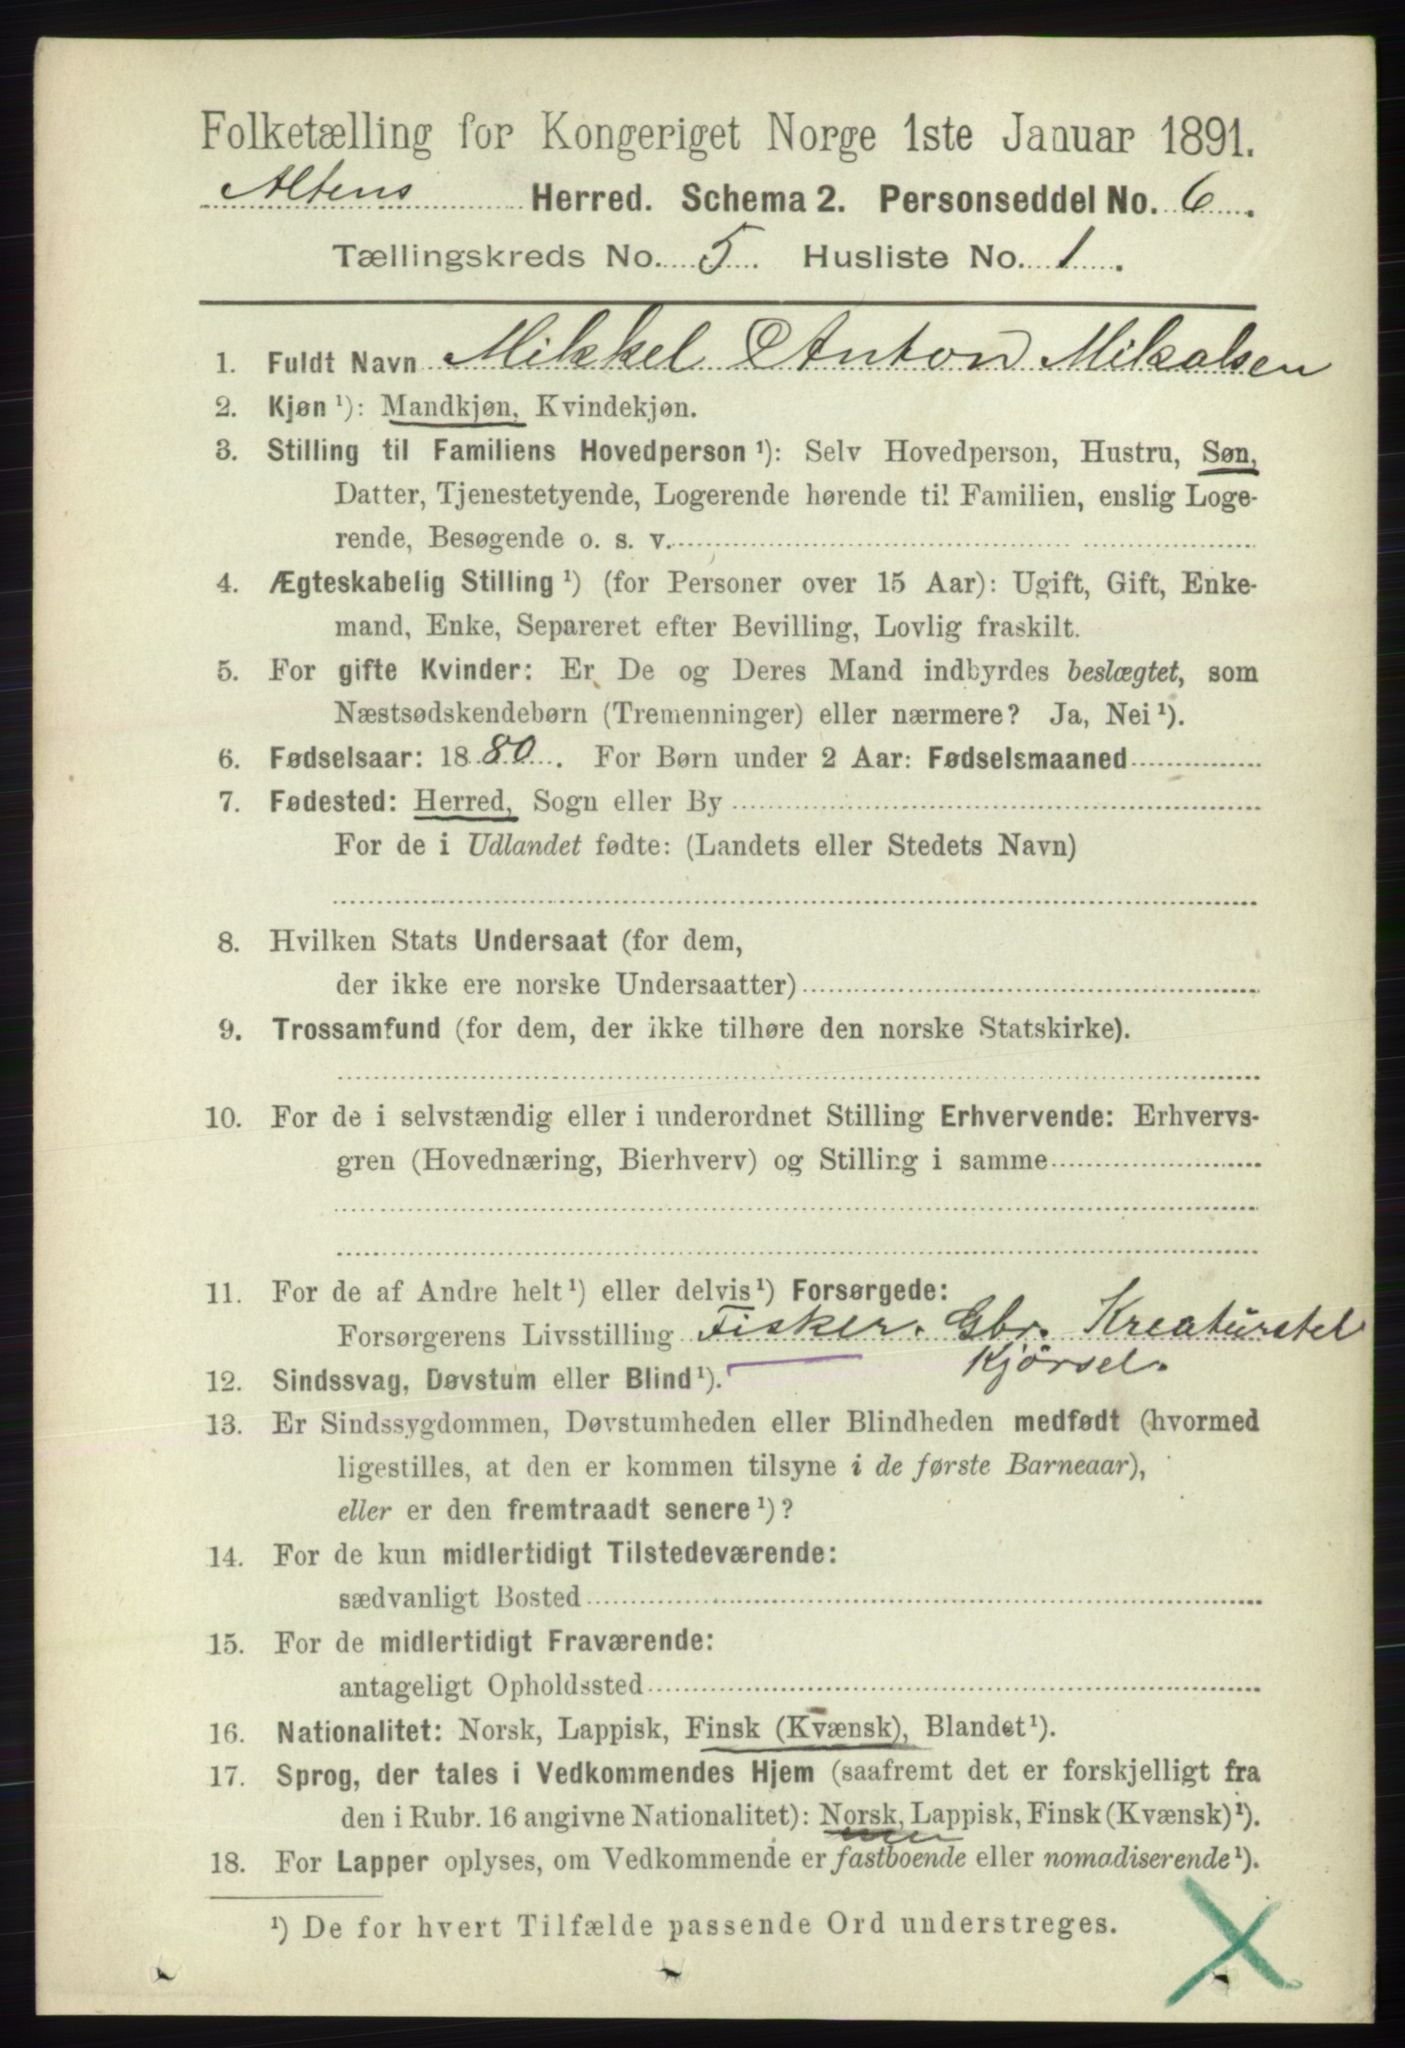 Folketælling for Kongeriget Norge 1ste Januar 1891.
Altens Herred. Schema 2. Personseddel No. 6.
Tællingskreds No. 5. Husliste No. 1.
1. Fuldt Navn Mikkel Anton Mikalsen
2. Kjøn ¹): Mandkjøn, Kvindekjøn.
3. Stilling til Familiens Hovedperson ¹): Selv Hovedperson, Hustru, Søn,
Datter, Tjenestetyende, Logerende hørende til Familien, enslig Loge-
rende, Besøgende o. s. v.
4. Ægteskabelig Stilling ¹) (for Personer over 15 Aar): Ugift, Gift, Enke-
mand, Enke, Separeret efter Bevilling, Lovlig fraskilt.
5. For gifte Kvinder: Er De og Deres Mand indbyrdes beslægtet, som
Næstsødskendebørn (Tremenninger) eller nærmere? Ja, Nei ¹).
6. Fødselsaar: 1880. For Børn under 2 Aar: Fødselsmaaned
7. Fødested: Herred, Sogn eller By
For de i Udlandet fødte: (Landets eller Stedets Navn)
8. Hvilken Stats Undersaat (for dem,
der ikke ere norske Undersaatter)
9. Trossamfund (for dem, der ikke tilhøre den norske Statskirke).
10. For de i selvstændig eller i underordnet Stilling Erhvervende: Erhvervs-
gren (Hovednæring, Bierhverv) og Stilling i samme
11. For de af Andre helt ¹) eller delvis ¹) Forsørgede:
Forsørgerens Livsstilling Fisker. Gbr. Kreaturstel
Kjørsel.
12. Sindssvag, Døvstum eller Blind ¹).
13. Er Sindssygdommen, Døvstumheden eller Blindheden medfødt (hvormed
ligestilles, at den er kommen tilsyne i de første Barneaar),
eller er den fremtraadt senere ¹)?
14. For de kun midlertidigt Tilstedeværende:
sædvanligt Bosted
15. For de midlertidigt Fraværende:
antageligt Opholdssted
16. Nationalitet: Norsk, Lappisk, Finsk (Kvænsk), Blandet ¹).
17. Sprog, der tales i Vedkommendes Hjem (saafremt det er forskjelligt fra
den i Rubr. 16 angivne Nationalitet): Norsk, Lappisk, Finsk (Kvænsk) ¹).
18. For Lapper oplyses, om Vedkommende er fastboende eller nomadiserende ¹).
¹) De for hvert Tilfælde passende Ord understreges.